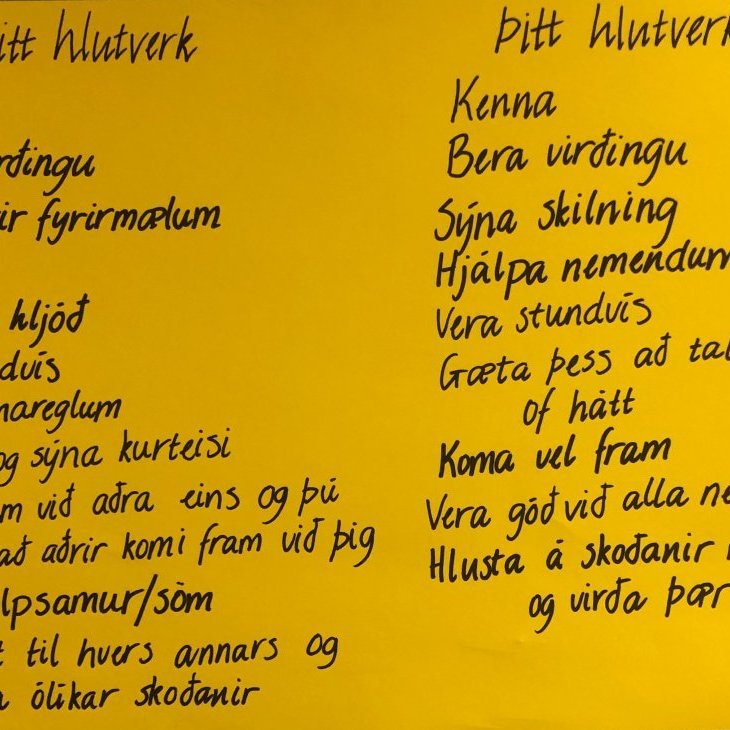 itt hlutverk
rðingu
ir fyrirmælum
hljóð
dvís
nareglum
og sýna kurteisi
m við aðra eins og þú
að aðrir komi fram við þig
lpsamur/söm
til hvers annars og
ólíkar skoðanir
Þitt hlutverk
Kenna
Bera virðingu
Sýna skilning
Hjálpa nemendum
Vera stundvís
Gæta þess að tal
of hátt
Koma vel fram
Vera góð við alla ne
Hlusta á skoðanir
og virða þær